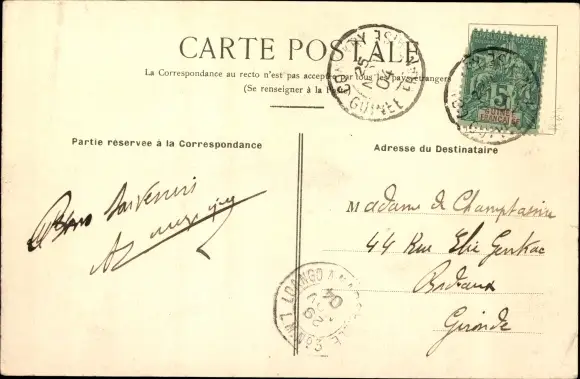 CARTE POSTALE
La Correspondance au recto n'est pas acceptée par tous les pays étrangers
(Se renseigner à la
Partie réservée à la Correspondance
Adresse du Destinataire
CONAKRY
25
04
GUINEE FRANÇAISE
5
GUINÉE
FRANÇAISE
Bons Souvenirs
Madame de
44 Rue Elie Gintrac
Bordeaux
Gironde
LOANGO A MARSEILLE
29
04
L.M. N